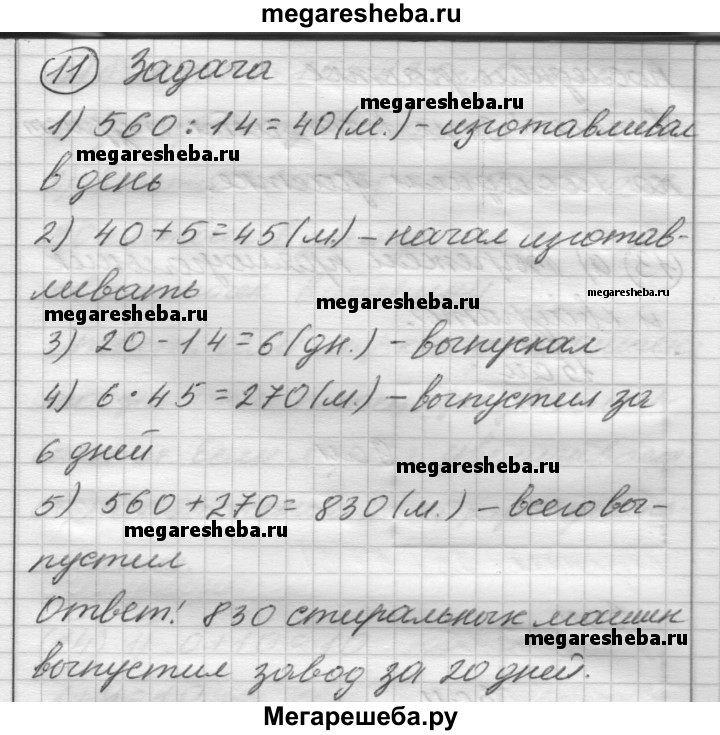 megaresheba.ru
11 Задача
megaresheba.ru
1) 560 : 14 = 40 (м.) - изготавливал
megaresheba.ru
в день
2) 40 + 5 = 45 (м.) - начал изготав-
ливать
megaresheba.ru
megaresheba.ru
3) 20 - 14 = 6 (дн.) - выпускал
4) 6 · 45 = 270 (м.) - выпустил за
6 дней
megaresheba.ru
5) 560 + 270 = 830 (м.) - всего вы-
megaresheba.ru
пустил
Ответ: 830 стиральных машин
megaresheba.ru
выпустил завод за 20 дней.
Мегарешеба.ру